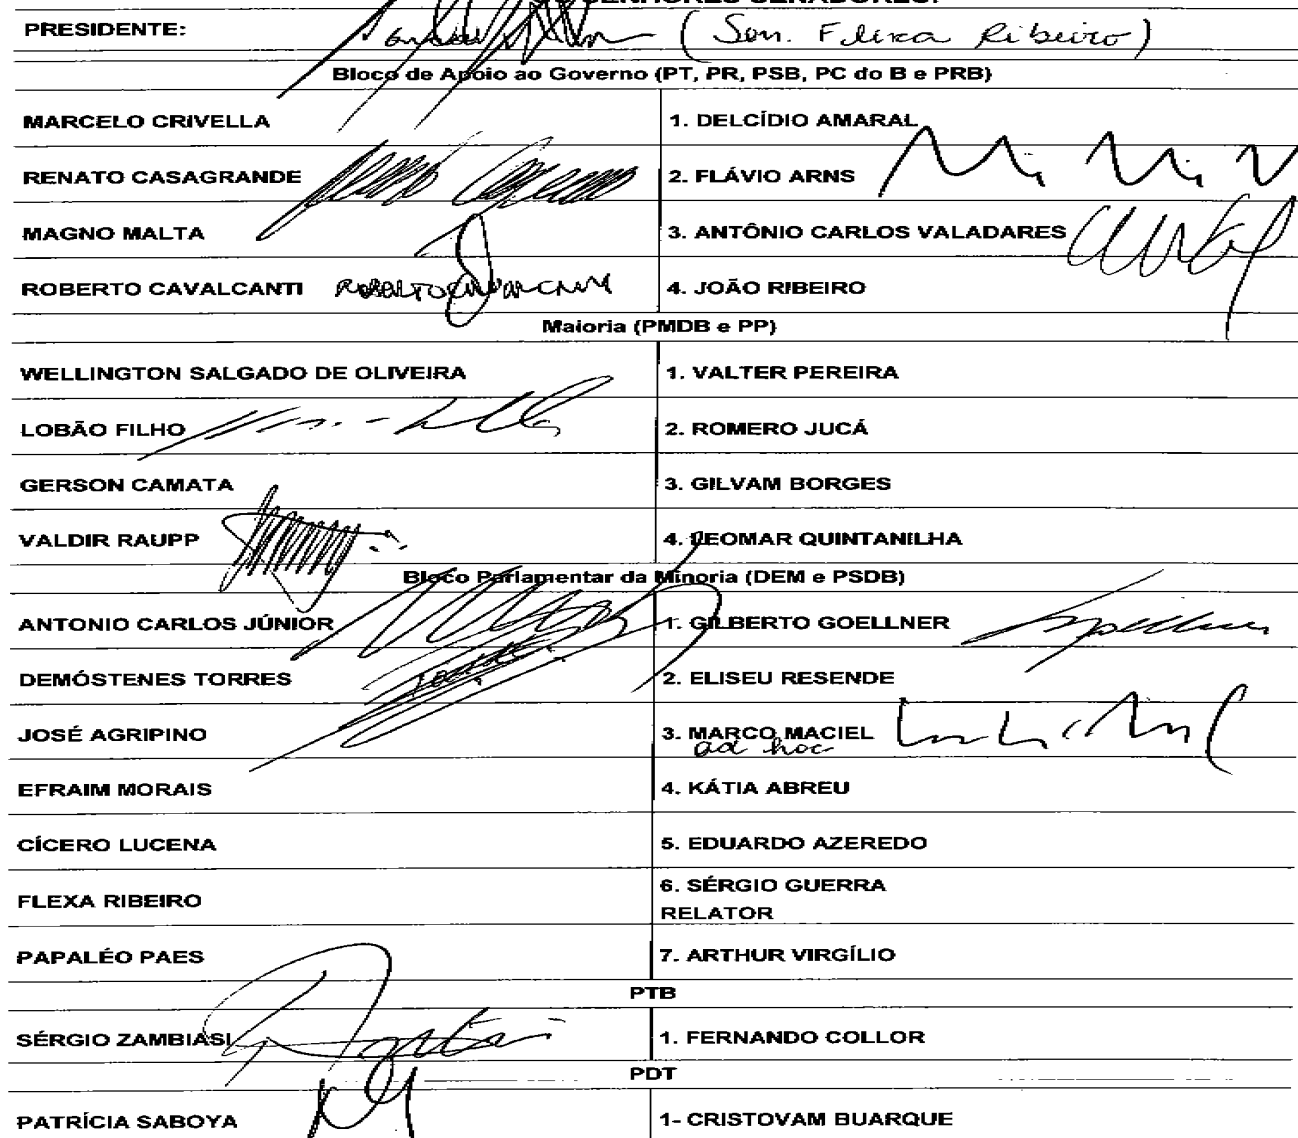 SENHORES SENADORES:
PRESIDENTE: (Sen. Flexa Ribeiro)
Bloco de Apoio ao Governo (PT, PR, PSB, PC do B e PRB)
MARCELO CRIVELLA 1. DELCÍDIO AMARAL
RENATO CASAGRANDE 2. FLÁVIO ARNS
MAGNO MALTA 3. ANTÔNIO CARLOS VALADARES
ROBERTO CAVALCANTI 4. JOÃO RIBEIRO
Maioria (PMDB e PP)
WELLINGTON SALGADO DE OLIVEIRA 1. VALTER PEREIRA
LOBÃO FILHO 2. ROMERO JUCÁ
GERSON CAMATA 3. GILVAM BORGES
VALDIR RAUPP 4. LEOMAR QUINTANILHA
Bloco Parlamentar da Minoria (DEM e PSDB)
ANTONIO CARLOS JÚNIOR 1. GILBERTO GOELLNER
DEMÓSTENES TORRES 2. ELISEU RESENDE
JOSÉ AGRIPINO 3. MARCO MACIEL
ad hoc
EFRAIM MORAIS 4. KÁTIA ABREU
CÍCERO LUCENA 5. EDUARDO AZEREDO
FLEXA RIBEIRO 6. SÉRGIO GUERRA
RELATOR
PAPALÉO PAES 7. ARTHUR VIRGÍLIO
PTB
SÉRGIO ZAMBIASI 1. FERNANDO COLLOR
PDT
PATRÍCIA SABOYA 1- CRISTOVAM BUARQUE